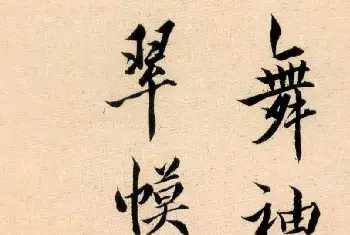 舞袖
翠幙